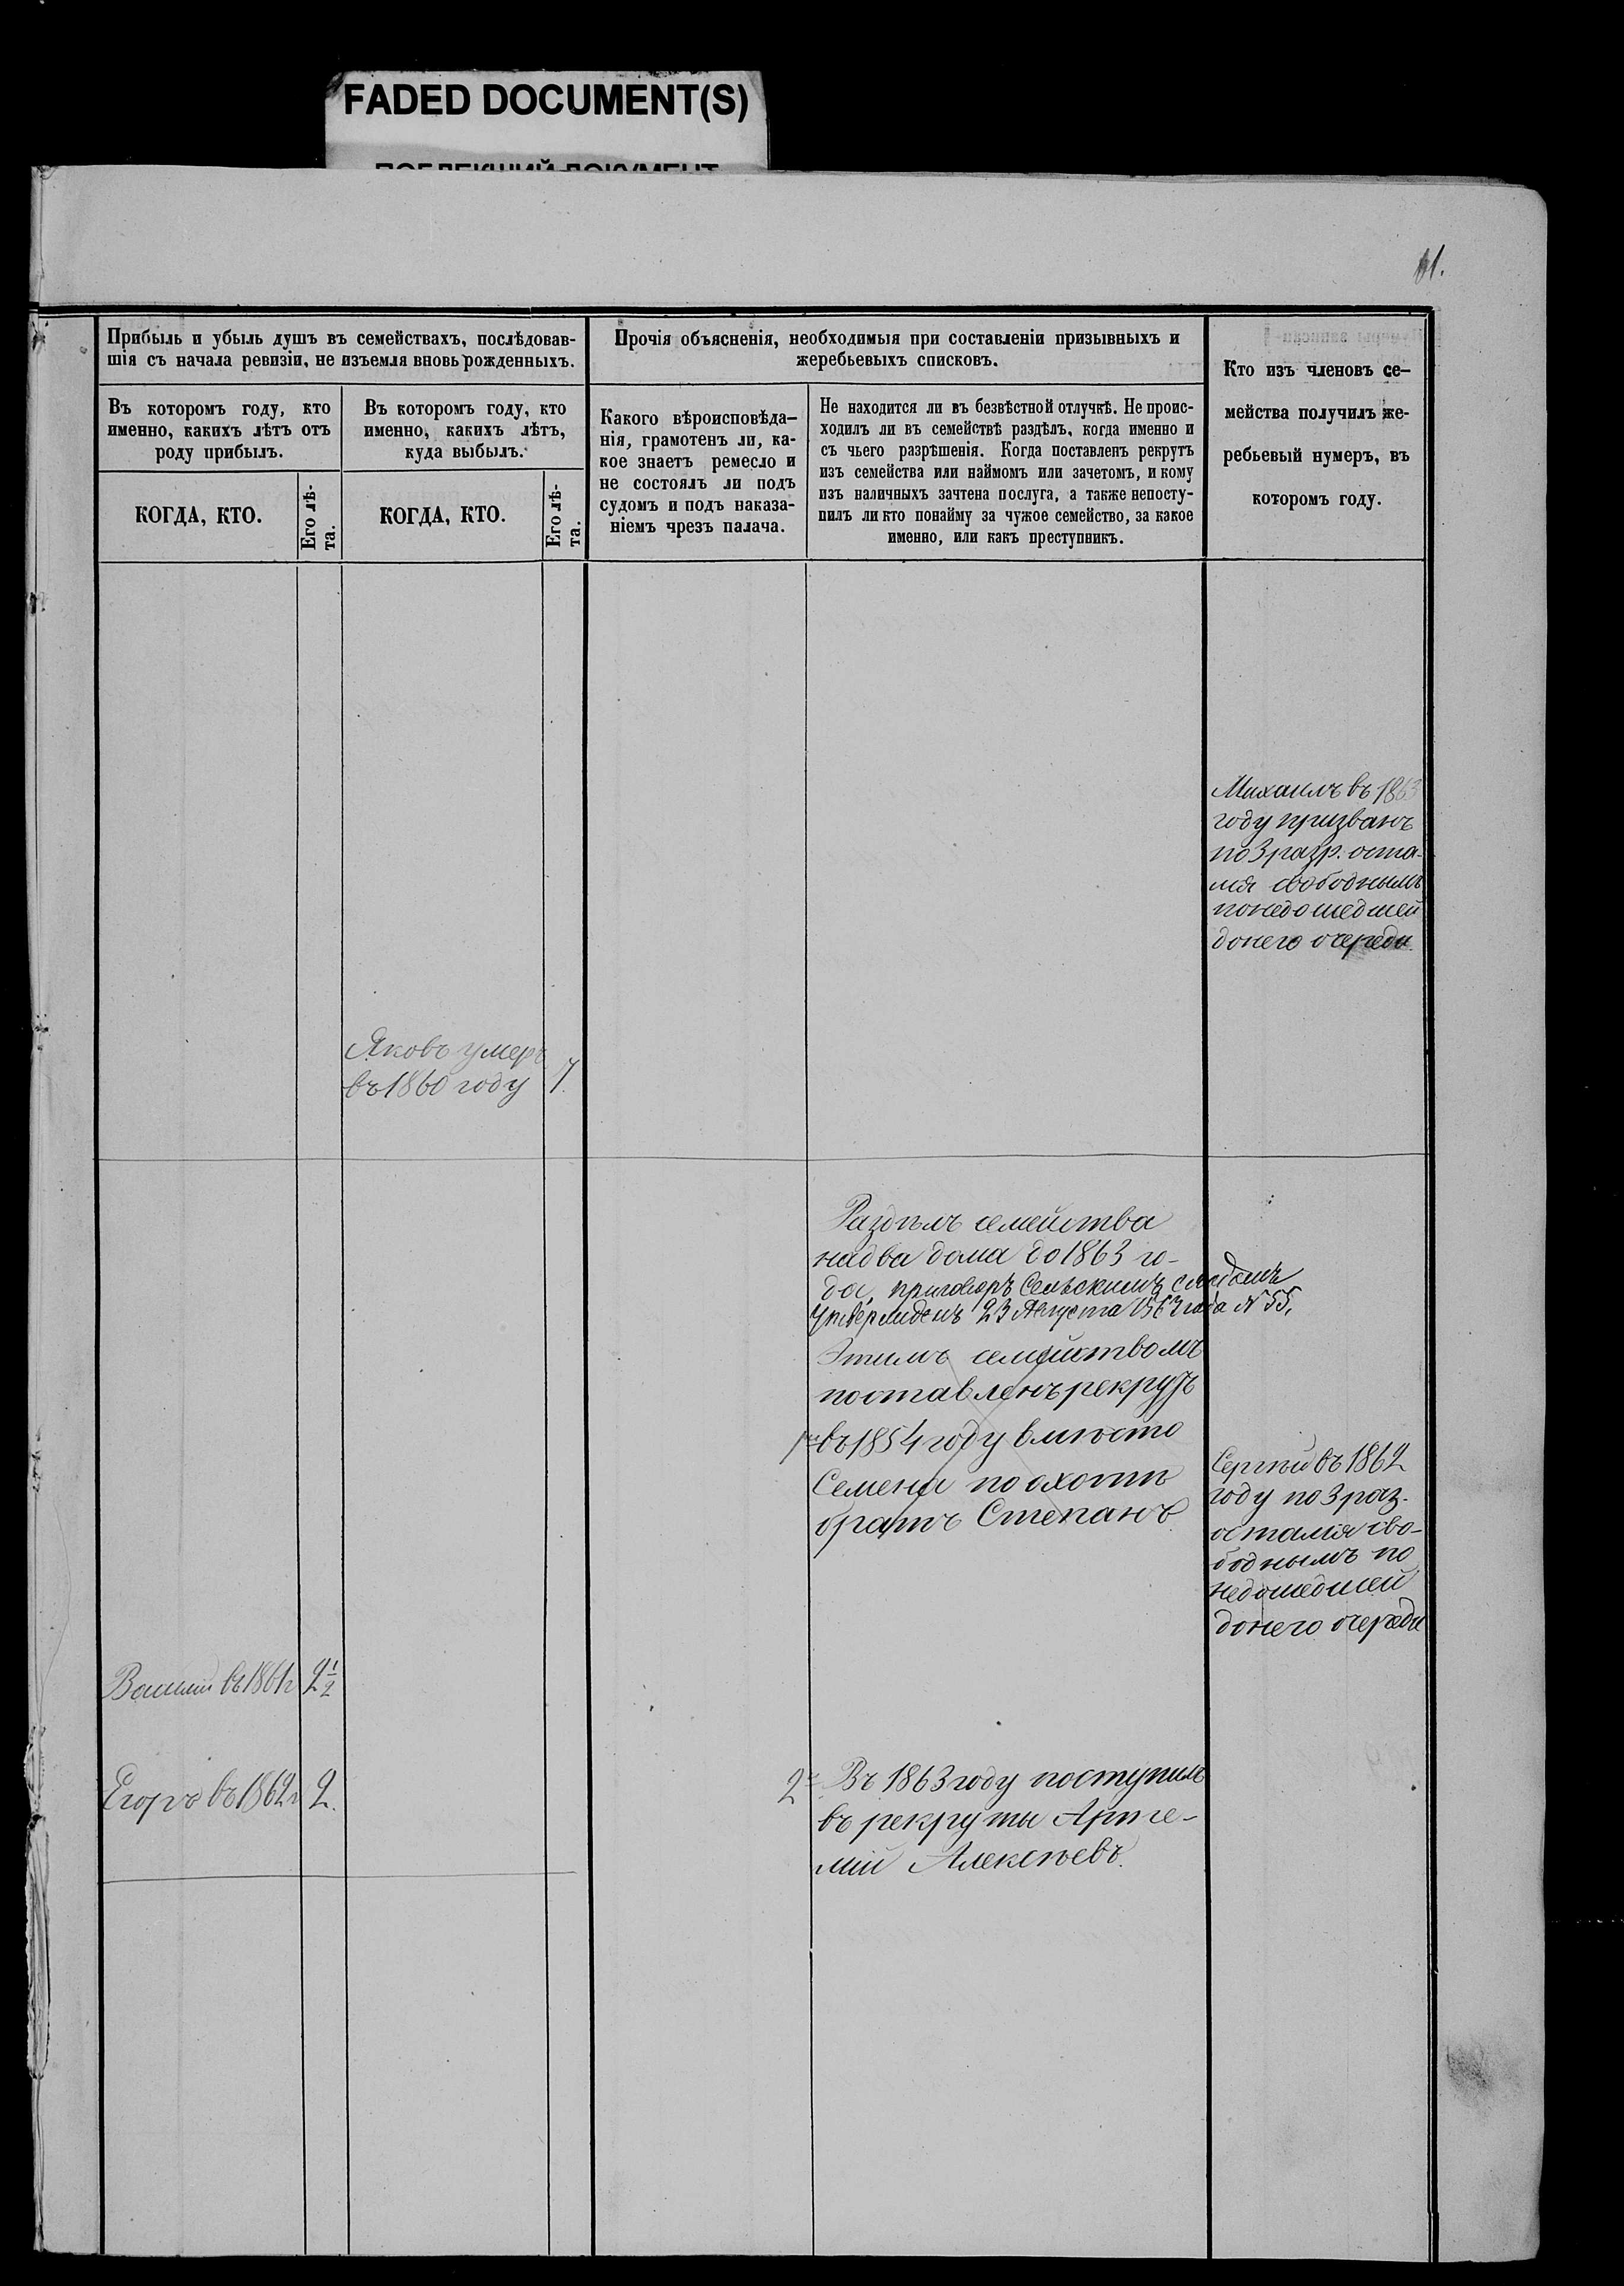 FADED DOCUMENT(S)
ПОБЛЕКШИЙ ДОКУМЕНТ
Прибыль и убыль душъ въ семействахъ, послѣдовав-
шія съ начала ревизіи, не изъемля вновь рожденныхъ.
Въ которомъ году, кто
именно, какихъ лѣтъ отъ
роду прибылъ.
КОГДА, КТО.
Его лѣ-
та.
Въ которомъ году, кто
именно, какихъ лѣтъ,
куда выбылъ.
КОГДА, КТО.
Его лѣ-
та.
Прочія объясненія, необходимыя при составленіи призывныхъ и
жеребьевыхъ списковъ.
Какого вѣроисповѣда-
нія, грамотенъ ли, ка-
кое знаетъ ремесло и
не состоялъ ли подъ
судомъ и подъ наказа-
ніемъ чрезъ палача.
Не находится ли въ безвѣстной отлучкѣ. Не проис-
ходилъ ли въ семействѣ раздѣлъ, когда именно и
съ чьего разрѣшенія. Когда поставленъ рекрутъ
изъ семейства или наймомъ или зачетомъ, и кому
изъ наличныхъ зачтена послуга, а также непосту-
пилъ ли кто понайму за чужое семейство, за какое
именно, или какъ преступникъ.
Кто изъ членовъ се-
мейства получилъ же-
ребьевый нумеръ, въ
которомъ году.
Михаилъ въ 1863
году призванъ
по 3 разр. оста-
лся свободнымъ
понедошедшей
донего очереди.
Яковъ умеръ
въ 1860 году 7.
Раздѣлъ семейства
на два дома до 1863 го-
да, приговоръ Сельскимъ сходомъ
Утвержденъ 23 Августа 1863 года № 55,
Этимъ семействомъ
поставленъ рекрутъ
въ 1854 году вмѣсто
Семена по охотѣ
братъ Степанъ
Сергѣй въ 1862
году по 3 раз.
остался сво-
боднымъ по
недошедшей
донего очереди
Василій въ 1861 г 2 1/2
Егоръ въ 1862 г 2.
2е Въ 1863 году поступилъ
въ рекруты Арте-
мій Алексѣевъ.